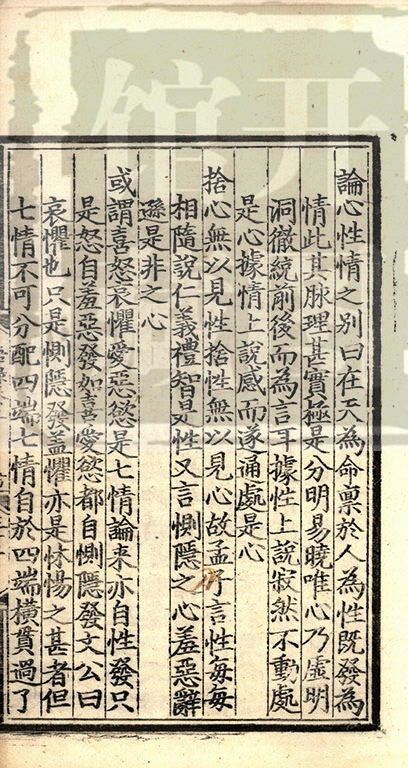 論心性情之別曰在天為命禀於人為性既發為
情此其脉理甚實極是分明易曉唯心乃虛明
洞徹統前後而為言耳據性上說寂然不動處
是心據情上說感而遂通處是心
捨心無以見性捨性無以見心故孟子言性每每
相隨說仁義禮智是性又言惻隱之心羞惡辭
遜是非之心
或謂喜怒哀懼愛惡慾是七情論来亦自性發只
是怒自羞惡發如喜愛慾都自惻隱發文公曰
哀懼也只是惻隱發盖懼亦是怵惕之甚者但
七情不可分配四端七情自於四端橫貫過了
開
館